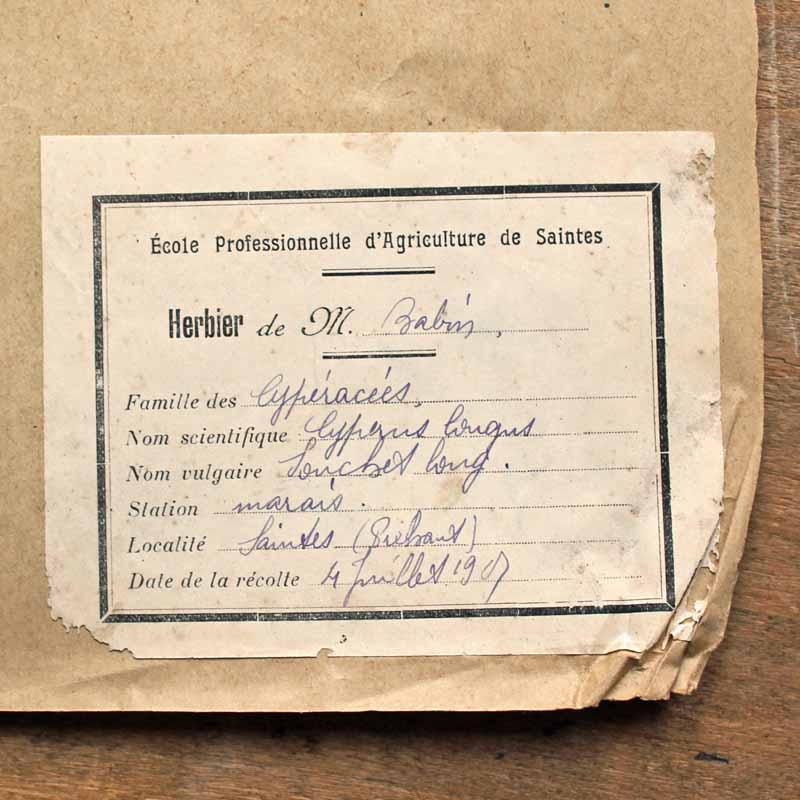 École Professionnelle d'Agriculture de Saintes
Herbier de M. Babin,
Famille des Cypéracées,
Nom scientifique Cyperus longus
Nom vulgaire Souchet long.
Station marais.
Localité Saintes
Date de la récolte 4 Juillet